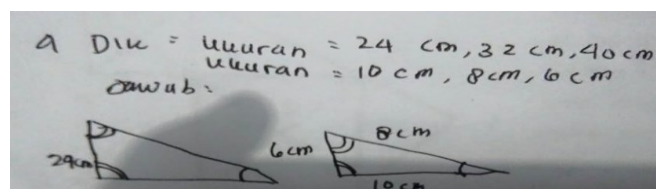 a Dik = ukuran = 24 cm, 32 cm, 40 cm
ukuran = 10 cm, 8 cm, 6 cm
Jawab:
24cm 6cm 8cm
10cm